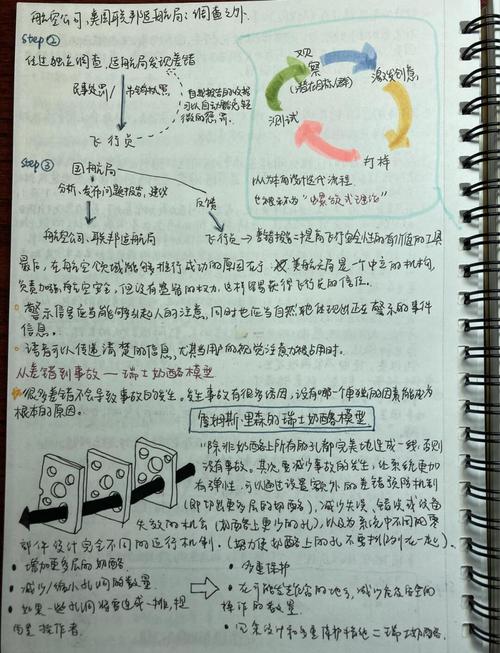 航空公司、美国联邦运航局: 调查之外.
Step②
经过独立调查, 运航局发现差错
民事处罚/ 吊销执照
自我报告的收据可以自动能免轻微的惩罚.
飞行员
观察
(潜在目标人群)
激发创意
打样
测试
以人为本的设计迭代流程
也被称为 "螺旋式理论"
Step③
国航局
分析、发布问题报告、建议
反馈
航空公司、联邦运航局
飞行员→差错报告=提高飞行安全性的有价值的工具
最后, 在航空领域能够推行成功的原因在于: 美航局是个中立的机构,
负责加强航空安全, 但没有监督的权力, 这样容易获得飞行员的信任。
警示信号应当能够引起人的注意, 同时也应当自然地体现出正在警示的事件
信息。
语音可以传递清楚的信息, 尤其当用户的视觉注意力被占用时.
从差错到事故 — 瑞士奶酪模型
很多差错不会导致事故的发生。发生事故有很多诱因, 没有哪一个单独的因素能成为
根本的原因。
詹姆斯·里森的瑞士奶酪模型
"除非奶酪上所有的孔都完美地连成一线, 否则
没有事故。其次要减少事故的发生, 让系统更加
有弹性, 可以通过设置额外的差错预防机制
(即切出更多层的奶酪), 减少失误、错误或设备
失效的机会 (奶酪上更少的孔), 以及为系统中不同的零
部件设计完全不同的运行机制. (努力使奶酪上的孔不要排列在一起).
• 增加更多层的奶酪.
• 减少/缩小孔洞的数量
• 如果一些孔洞将要连成一排, 提
醒操作者.
• 多重保护
• 在可能发生危害的地方, 减少危及安全的
操作的数量.